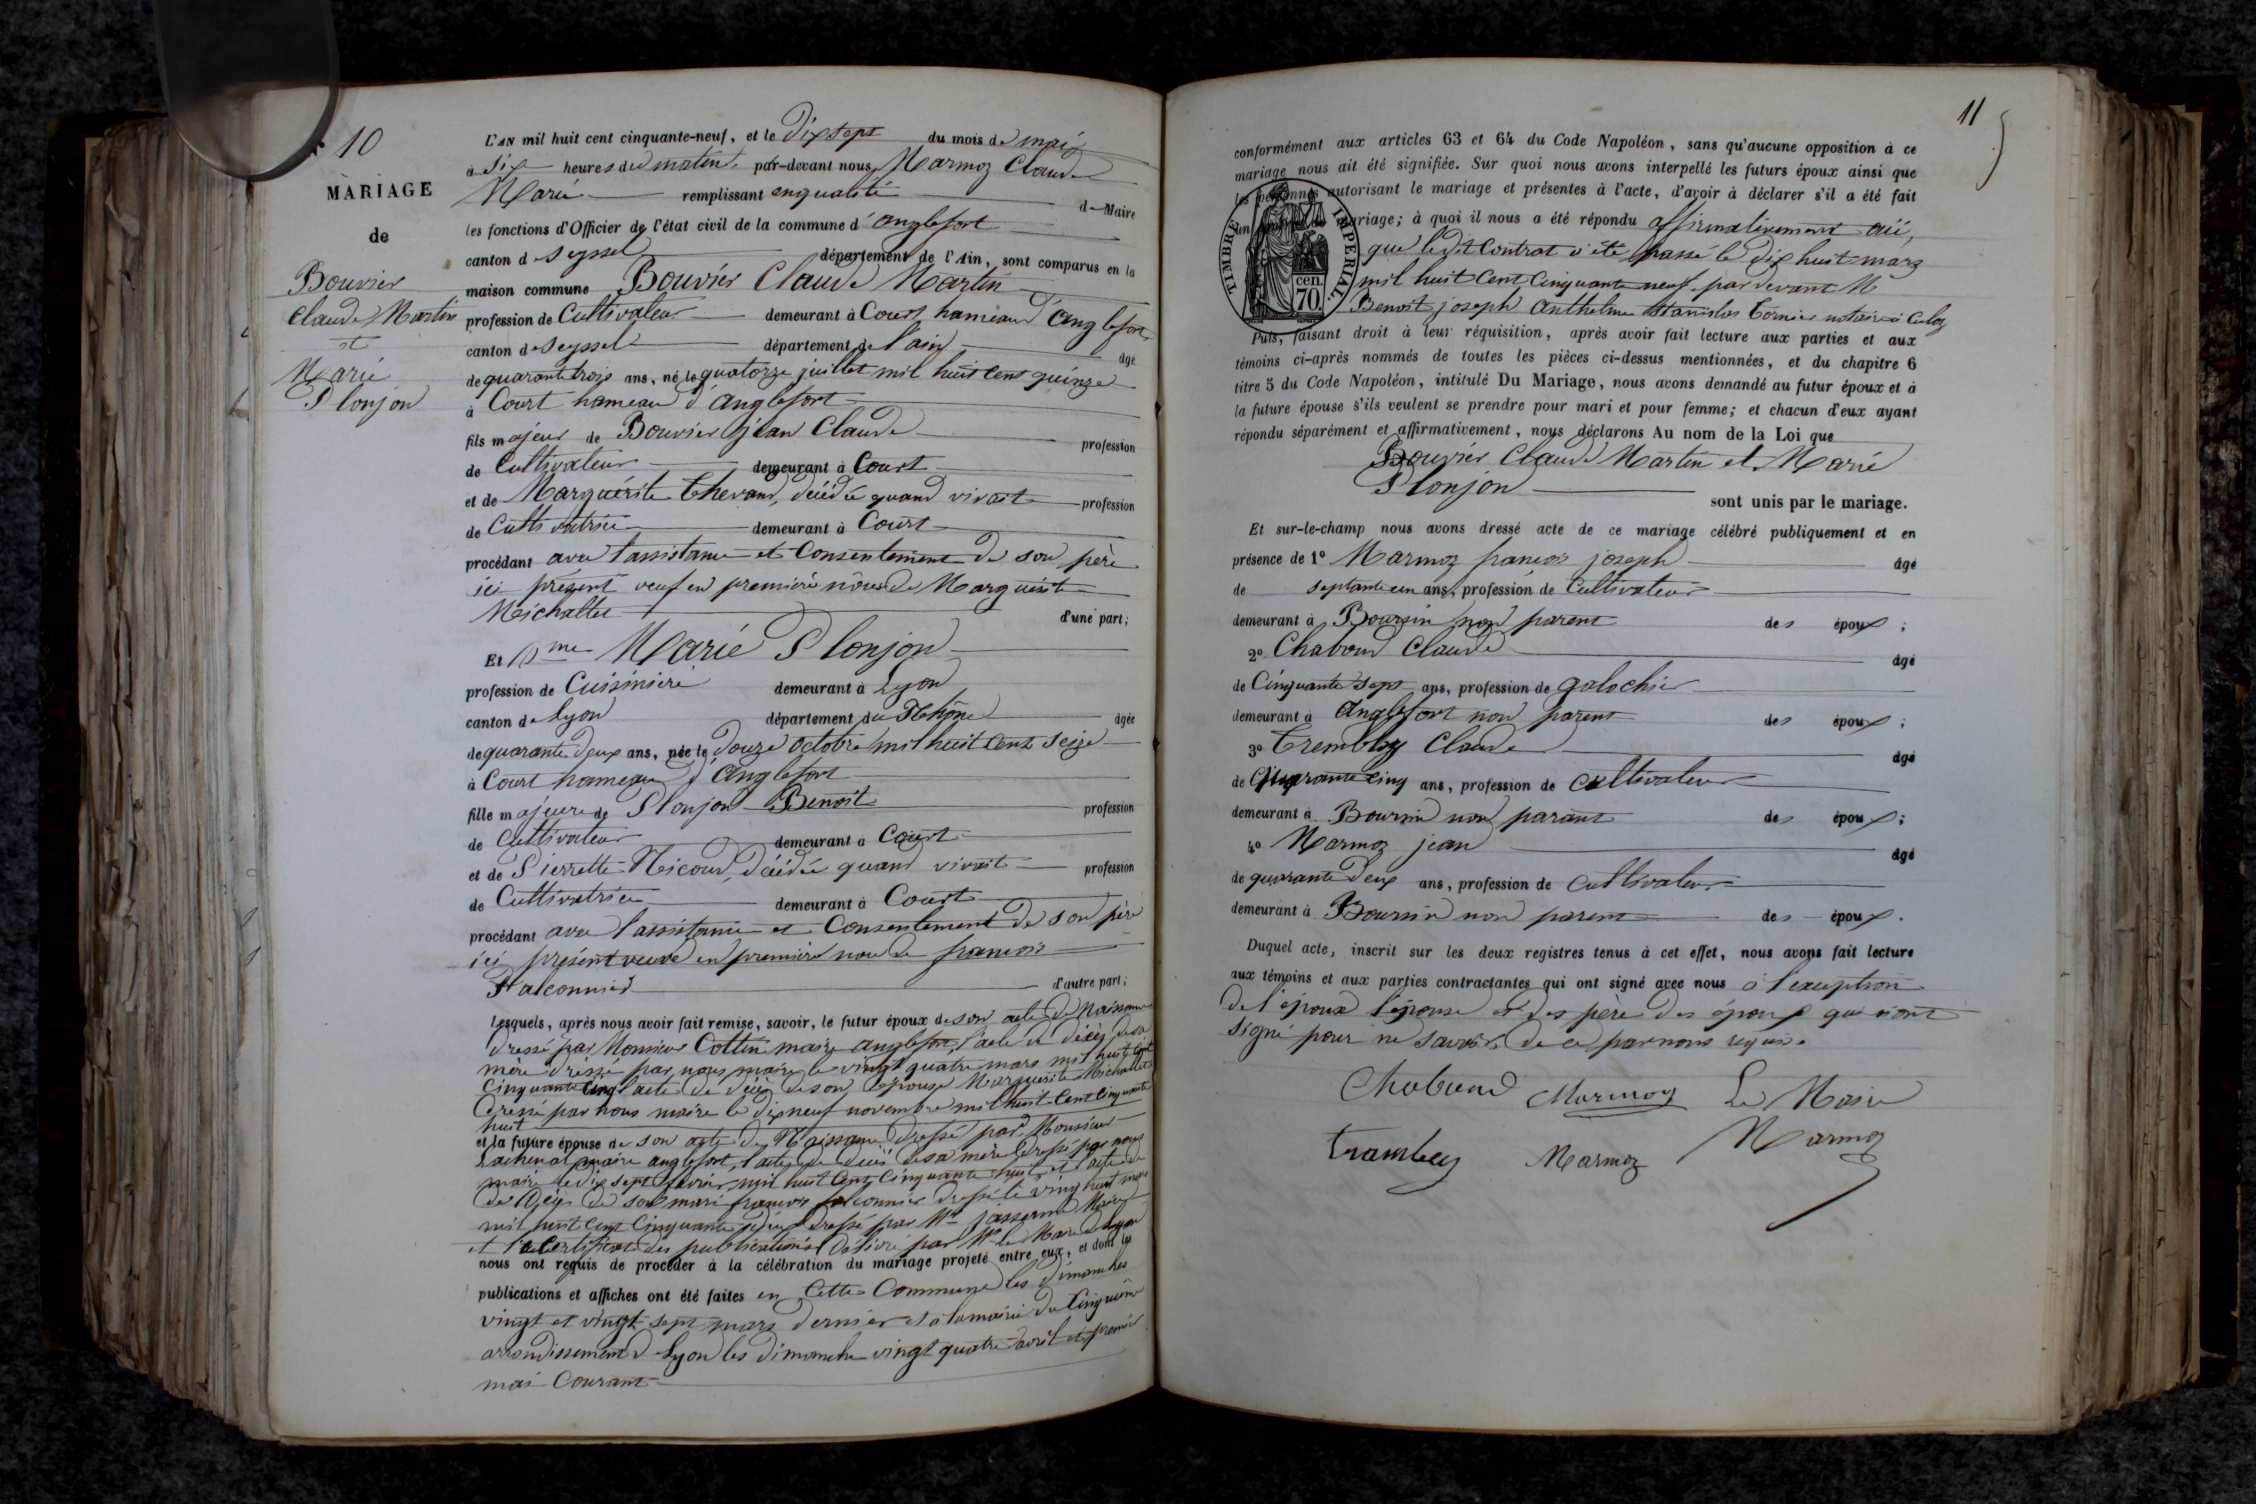 N° 10
MARIAGE
de
Bouvier
Claude Martin
et
Marie
Plonjon
L'AN mil huit cent cinquante-neuf, et le dix sept du mois de mai
à six heures du matin par-devant nous Marmoz Claude
Maire remplissant en qualité de Maire
les fonctions d'Officier de l'état civil de la commune d'anglefort
canton de seyssel département de l'Ain, sont comparus en la
maison commune Bouvier Claude Martin
profession de Cultivateur demeurant à Court hameau d'anglefort
canton de seyssel département de l'ain âgé
de quarante trois ans, né le quatorze juillet mil huit cent quinze
à Court hameau d'anglefort
fils majeur de Bouvier jean Claude profession
de Cultivateur demeurant à Court
et de Marguérite Thevand, décédée quand vivait profession
de Cultivatrice demeurant à Court
procédant avec l'assistance et Consentement de son père
ici présent veuf en première nôce de Marguerite
Michallet d'une part;
Et Dme Marie Plonjon
profession de Cuisinière demeurant à Lyon
canton de Lyon département du Rhône âgée
de quarante deux ans, née le douze octobre mil huit cent seize
à Court hameau d'anglefort
fille majeure de Plonjon Benoit profession
de Cultivateur demeurant à Court
et de Pierrette Nicoud, décédée quand vivait profession
de Cultivatrice demeurant à Court
procédant avec l'assistance et Consentement de son père
ici présent veuve en première noce de francois
Falconnier d'autre part;
Lesquels, après nous avoir fait remise, savoir, le futur époux de son acte de Naissance
dressé par Monsieur Cottin maire anglefort, l'acte de décès de sa
mère dressé par nous maire le vingt quatre mars mil huit cent
Cinquante cinq l'acte de décès de son épouse Marguerite Michallet
dressé par nous maire le dix neuf novembre mil huit Cent Cinquante
huit
et la future épouse de son acte de Naissance dressé par Monsieur
Lachenal maire anglefort, l'acte de décès de sa mère dressé par nous
maire le dix sept fevrier mil huit Cent Cinquante huit et l'acte de
de décès de son mari francois falconnier dressé le vingt huit mars
mil huit Cent Cinquante dressé par Mr Maire
et le Certificat des publications délivré par Mr le Maire de Lyon
nous ont requis de procéder à la célébration du mariage projeté entre eux, et dont les
publications et affiches ont été faites en Cette Commune les dimanches
vingt et vingt sept mars dernier et à la mairie du Cinquième
arrondissement de Lyon les dimanche vingt quatre avril et premier
mai Courant
11
conformément aux articles 63 et 64 du Code Napoléon, sans qu'aucune opposition à ce
mariage nous ait été signifiée. Sur quoi nous avons interpellé les futurs époux ainsi que
les personnes autorisant le mariage et présentes à l'acte, d'avoir à déclarer s'il a été fait
un mariage; à quoi il nous a été répondu affirmativement oui,
que ledit Contrat a été passé le dix huit mars
mil huit Cent Cinquante neuf par devant M
Benoit joseph Anthelme Stanislas Cornier notaire à Culoz
TIMBRE IMPÉRIAL
70 cen.
Puis, faisant droit à leur réquisition, après avoir fait lecture aux parties et aux
témoins ci-après nommés de toutes les pièces ci-dessus mentionnées, et du chapitre 6
titre 5 du Code Napoléon, intitulé Du Mariage, nous avons demandé au futur époux et à
la future épouse s'ils veulent se prendre pour mari et pour femme; et chacun d'eux ayant
répondu séparément et affirmativement, nous déclarons Au nom de la Loi que
Bouvier Claude Martin et Marie
Plonjon sont unis par le mariage.
Et sur-le-champ nous avons dressé acte de ce mariage célébré publiquement et en
présence de 1° Marmoz françois joseph âgé
de septante un ans, profession de Cultivateur
demeurant à Boursin non parent des époux;
2° Chaboud Claude âgé
de Cinquante sept ans, profession de galochier
demeurant à Anglefort non parent des époux;
3° Trembley Claude âgé
de Quarante cinq ans, profession de Cultivateur
demeurant à Boursin non parant des époux;
4° Marmoz jean âgé
de quarante deux ans, profession de Cultivateur
demeurant à Boursin non parent des époux.
Duquel acte, inscrit sur les deux registres tenus à cet effet, nous avons fait lecture
aux témoins et aux parties contractantes qui ont signé avec nous à l'exception
de l'époux l'épouse et des père des époux qui n'ont
signé pour ne savoir, de ce par nous requis.
Chaboud Marmoz Le Maire
Trambley Marmoz Marmoz